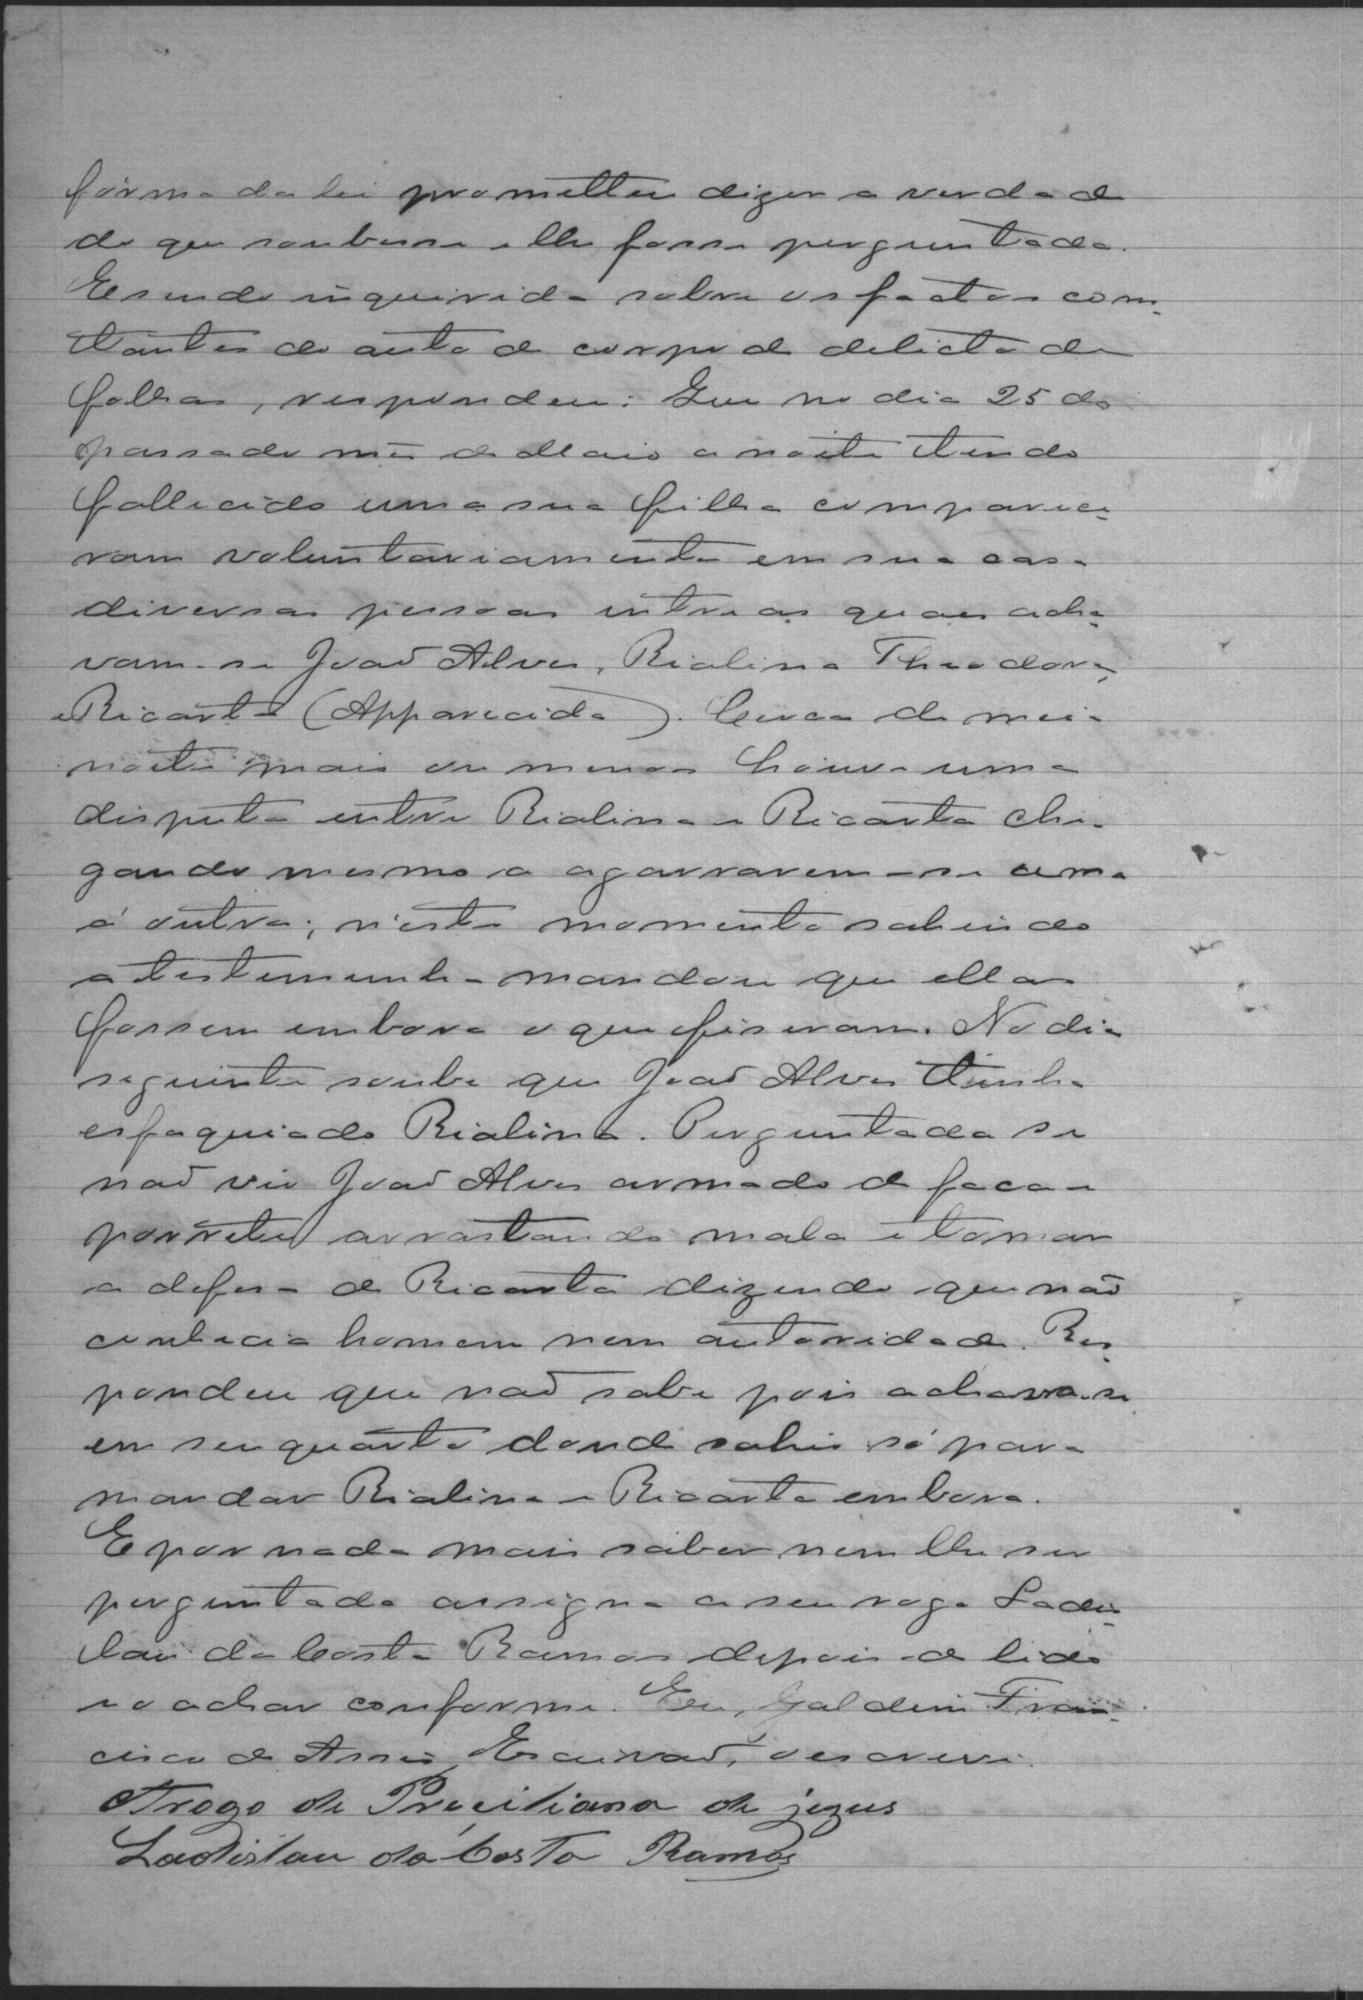 fórma da lei prometteu dizer a verdade
do que soubesse e lhe fosse perguntado.
E sendo inquirida sobre os factos cons-
tantes do auto de corpo de delicto de
folhas, respondeu: Que no dia 25 do
passado mês de Maio a noite tendo
fallecido uma sua filha comparece-
ram voluntariamente em sua casa
diversas pessoas entre as quaes acha-
vam-se João Alves, Rialina Theodora,
e Ricarta (Apparecida). Cerca de meia
noite mais ou menos houve uma
disputa entre Rialina e Ricarta che-
gando mesmo a agarrarem-se uma
á outra; n'este momento sahindo
a testemunha mandou que ellas
fossem embora o que fiseram. No dia
seguinte soube que João Alves tinha
esfaqueado Rialina. Perguntada se
não viu João Alves armado de faca e
porrete arrastando mala e tomar
a defesa de Ricarta dizendo que não
conhecia homem nem autoridade. Res-
pondeu que não sabe pois achava-se
em seu quarto donde sahiu só para
mandar Rialina e Ricarta embora.
E por nada mais saber nem lhe ser
perguntado assigna a seu rogo Ladis-
lau da Costa Ramos depois de lido
e o achar conforme. Eu, Galdino Fran-
cisco de Assis, Escrivão, o escrevi.
Arrogo de Preciliana de jezus
Ladislau da Costa Ramos